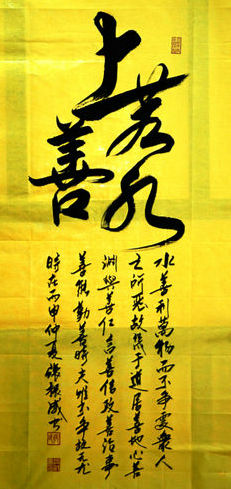 上善若水
水善利萬物而不爭處衆人
之所惡故幾于道居善地心善
渊與善仁言善信政善治事
善能動善時夫唯不爭故無尤
時在丙申仲夏